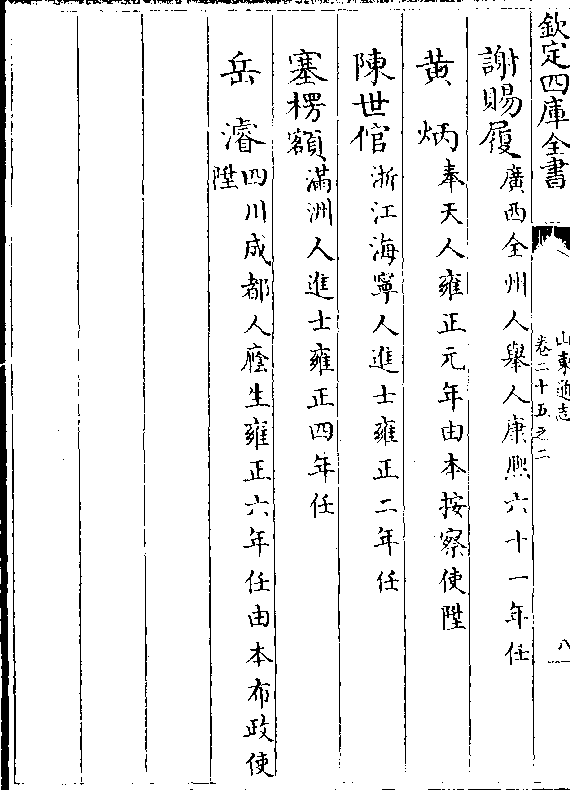 欽定四庫全書
山東通志
卷二十五之二
八
謝賜履廣西全州人舉人康熙六十一年任
黄炳奉天人雍正元年由本按察使陞
陳世倌浙江海寧人進士雍正二年任
塞楞額滿洲人進士雍正四年任
岳濬四川成都人廕生雍正六年任由本布政使
陞